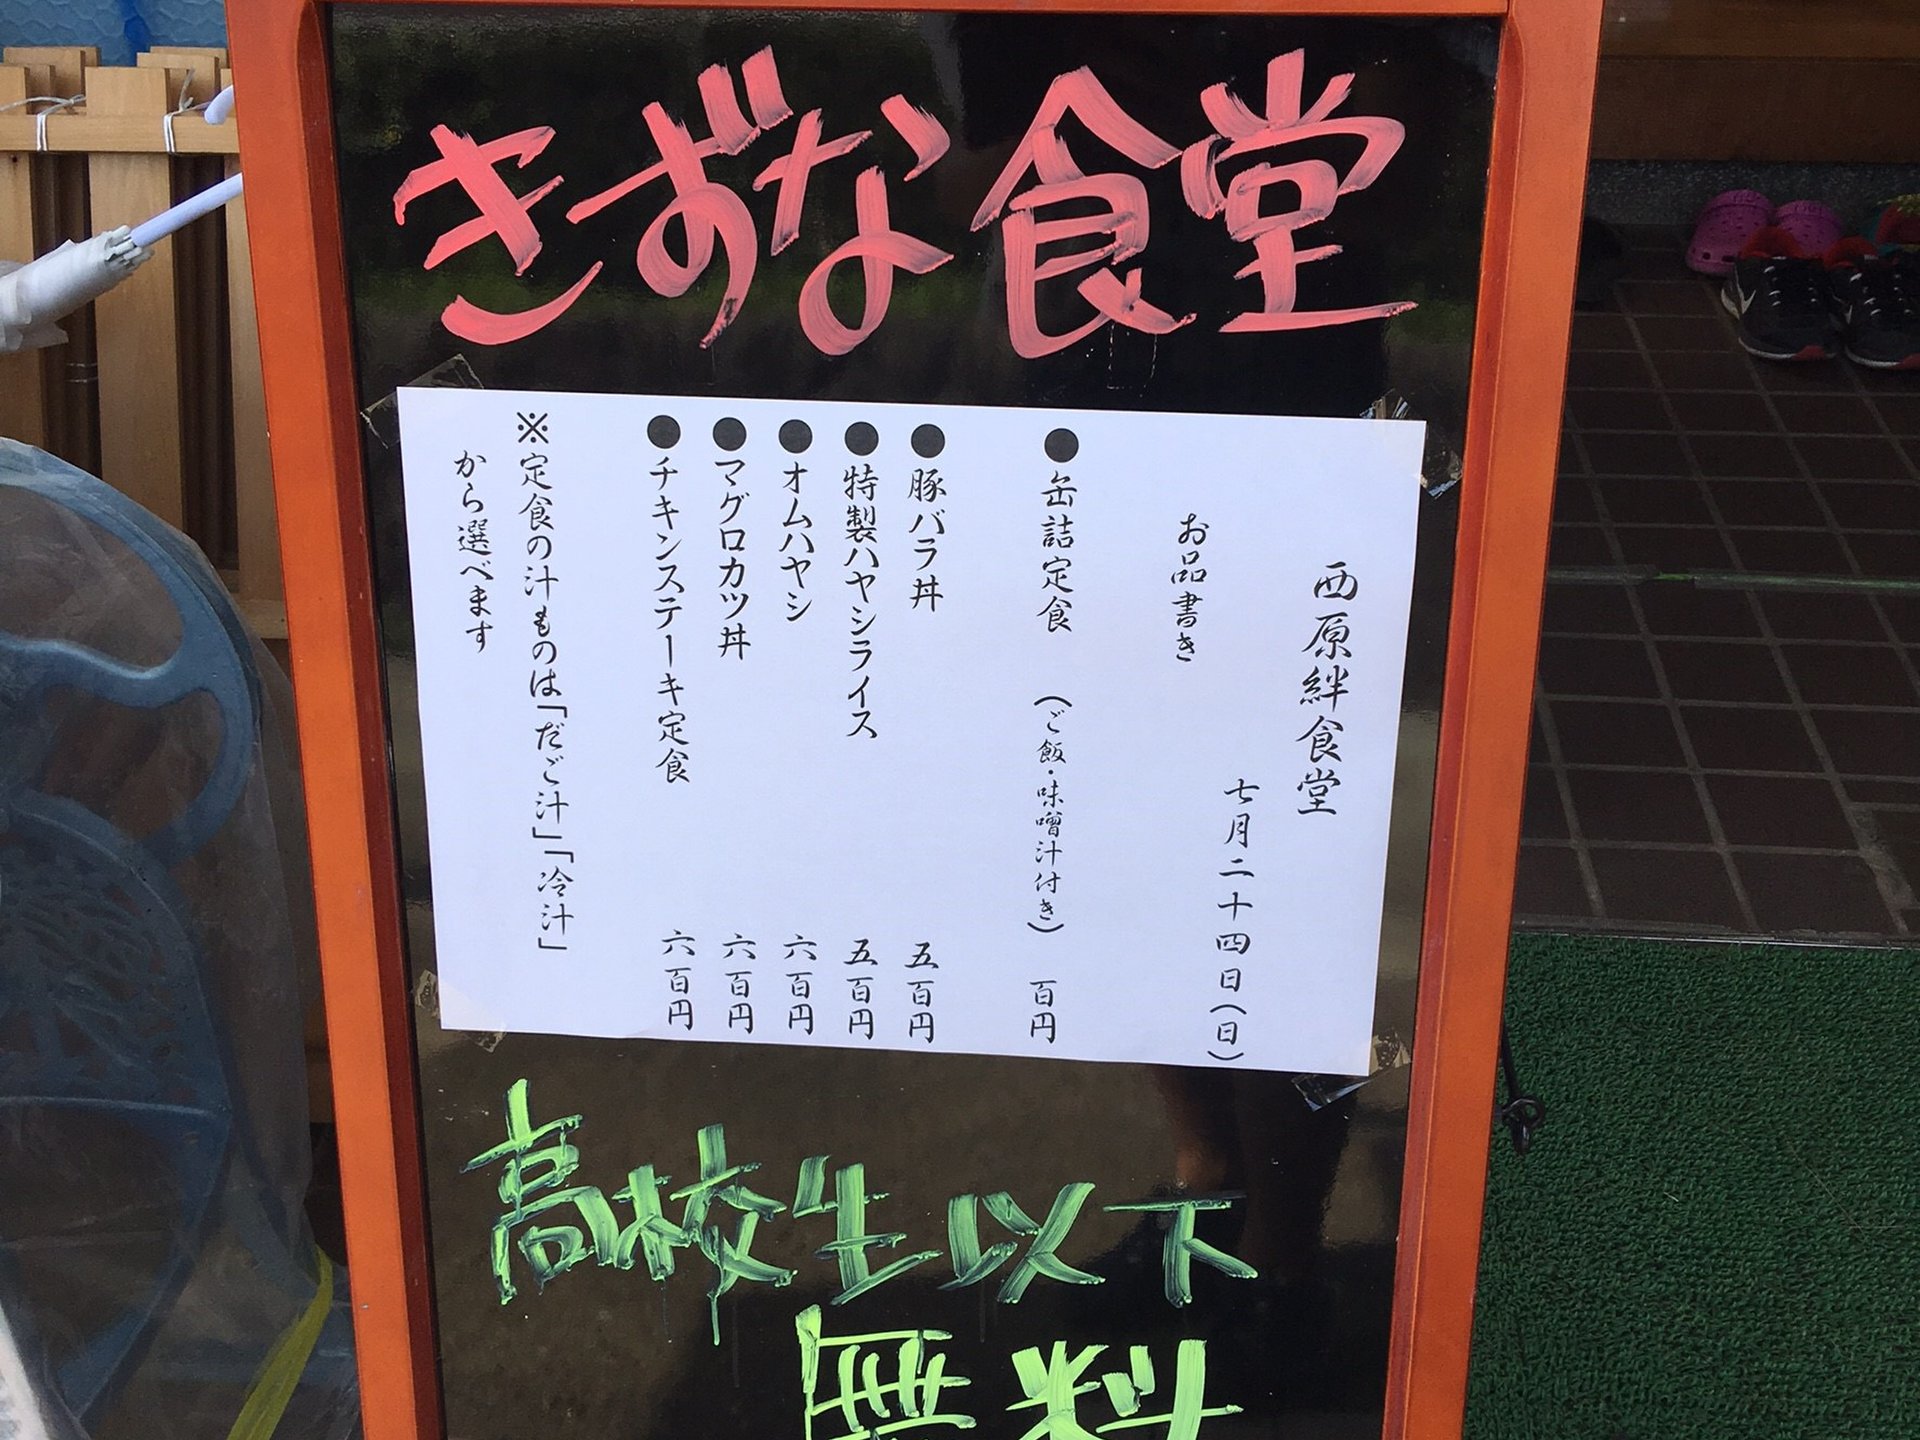 きずな食堂
西原絆食堂
七月二十四日（日）
お品書き
●缶詰定食 （ご飯・味噌汁付き） 百円
●豚バラ丼 五百円
●特製ハヤシライス 五百円
●オムハヤシ 六百円
●マグロカツ丼 六百円
●チキンステーキ定食 六百円
※定食の汁ものは「だご汁」「冷汁」
から選べます
高校生以下
無料